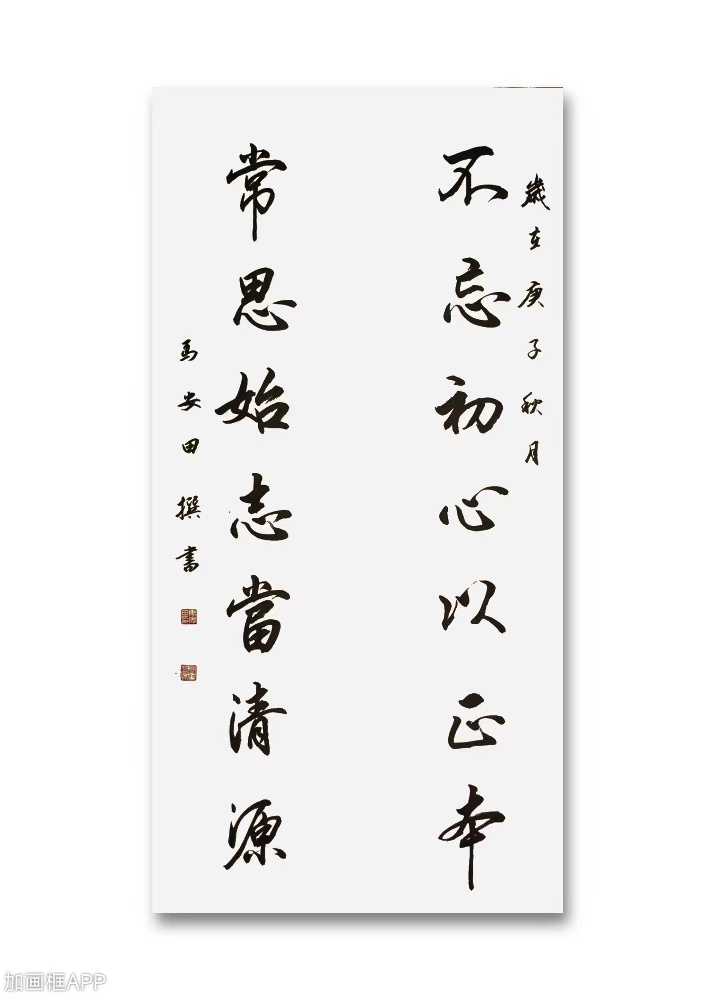 歲在庚子秋月
不忘初心以正本
常思始志當清源
馬安田 撰書
加画框APP